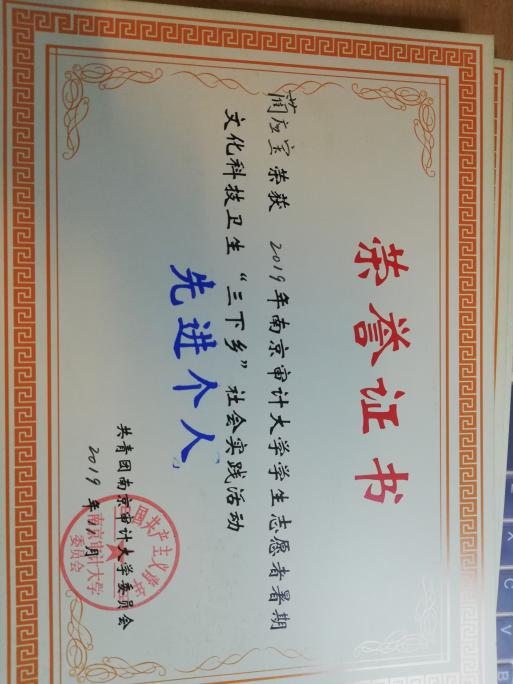 荣誉证书
荣获 2019年南京审计大学学生志愿者暑期
文化科技卫生“三下乡”社会实践活动
先进个人
共青团南京审计大学委员会
2019年 月
南京审计大学
委员会
X
C
V
B